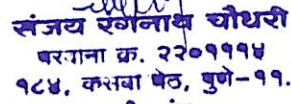 संजय रंगनाथ चौधरी
परवाना क्र. २२०१११५
१८४, कसबा पेठ, पुणे-११.